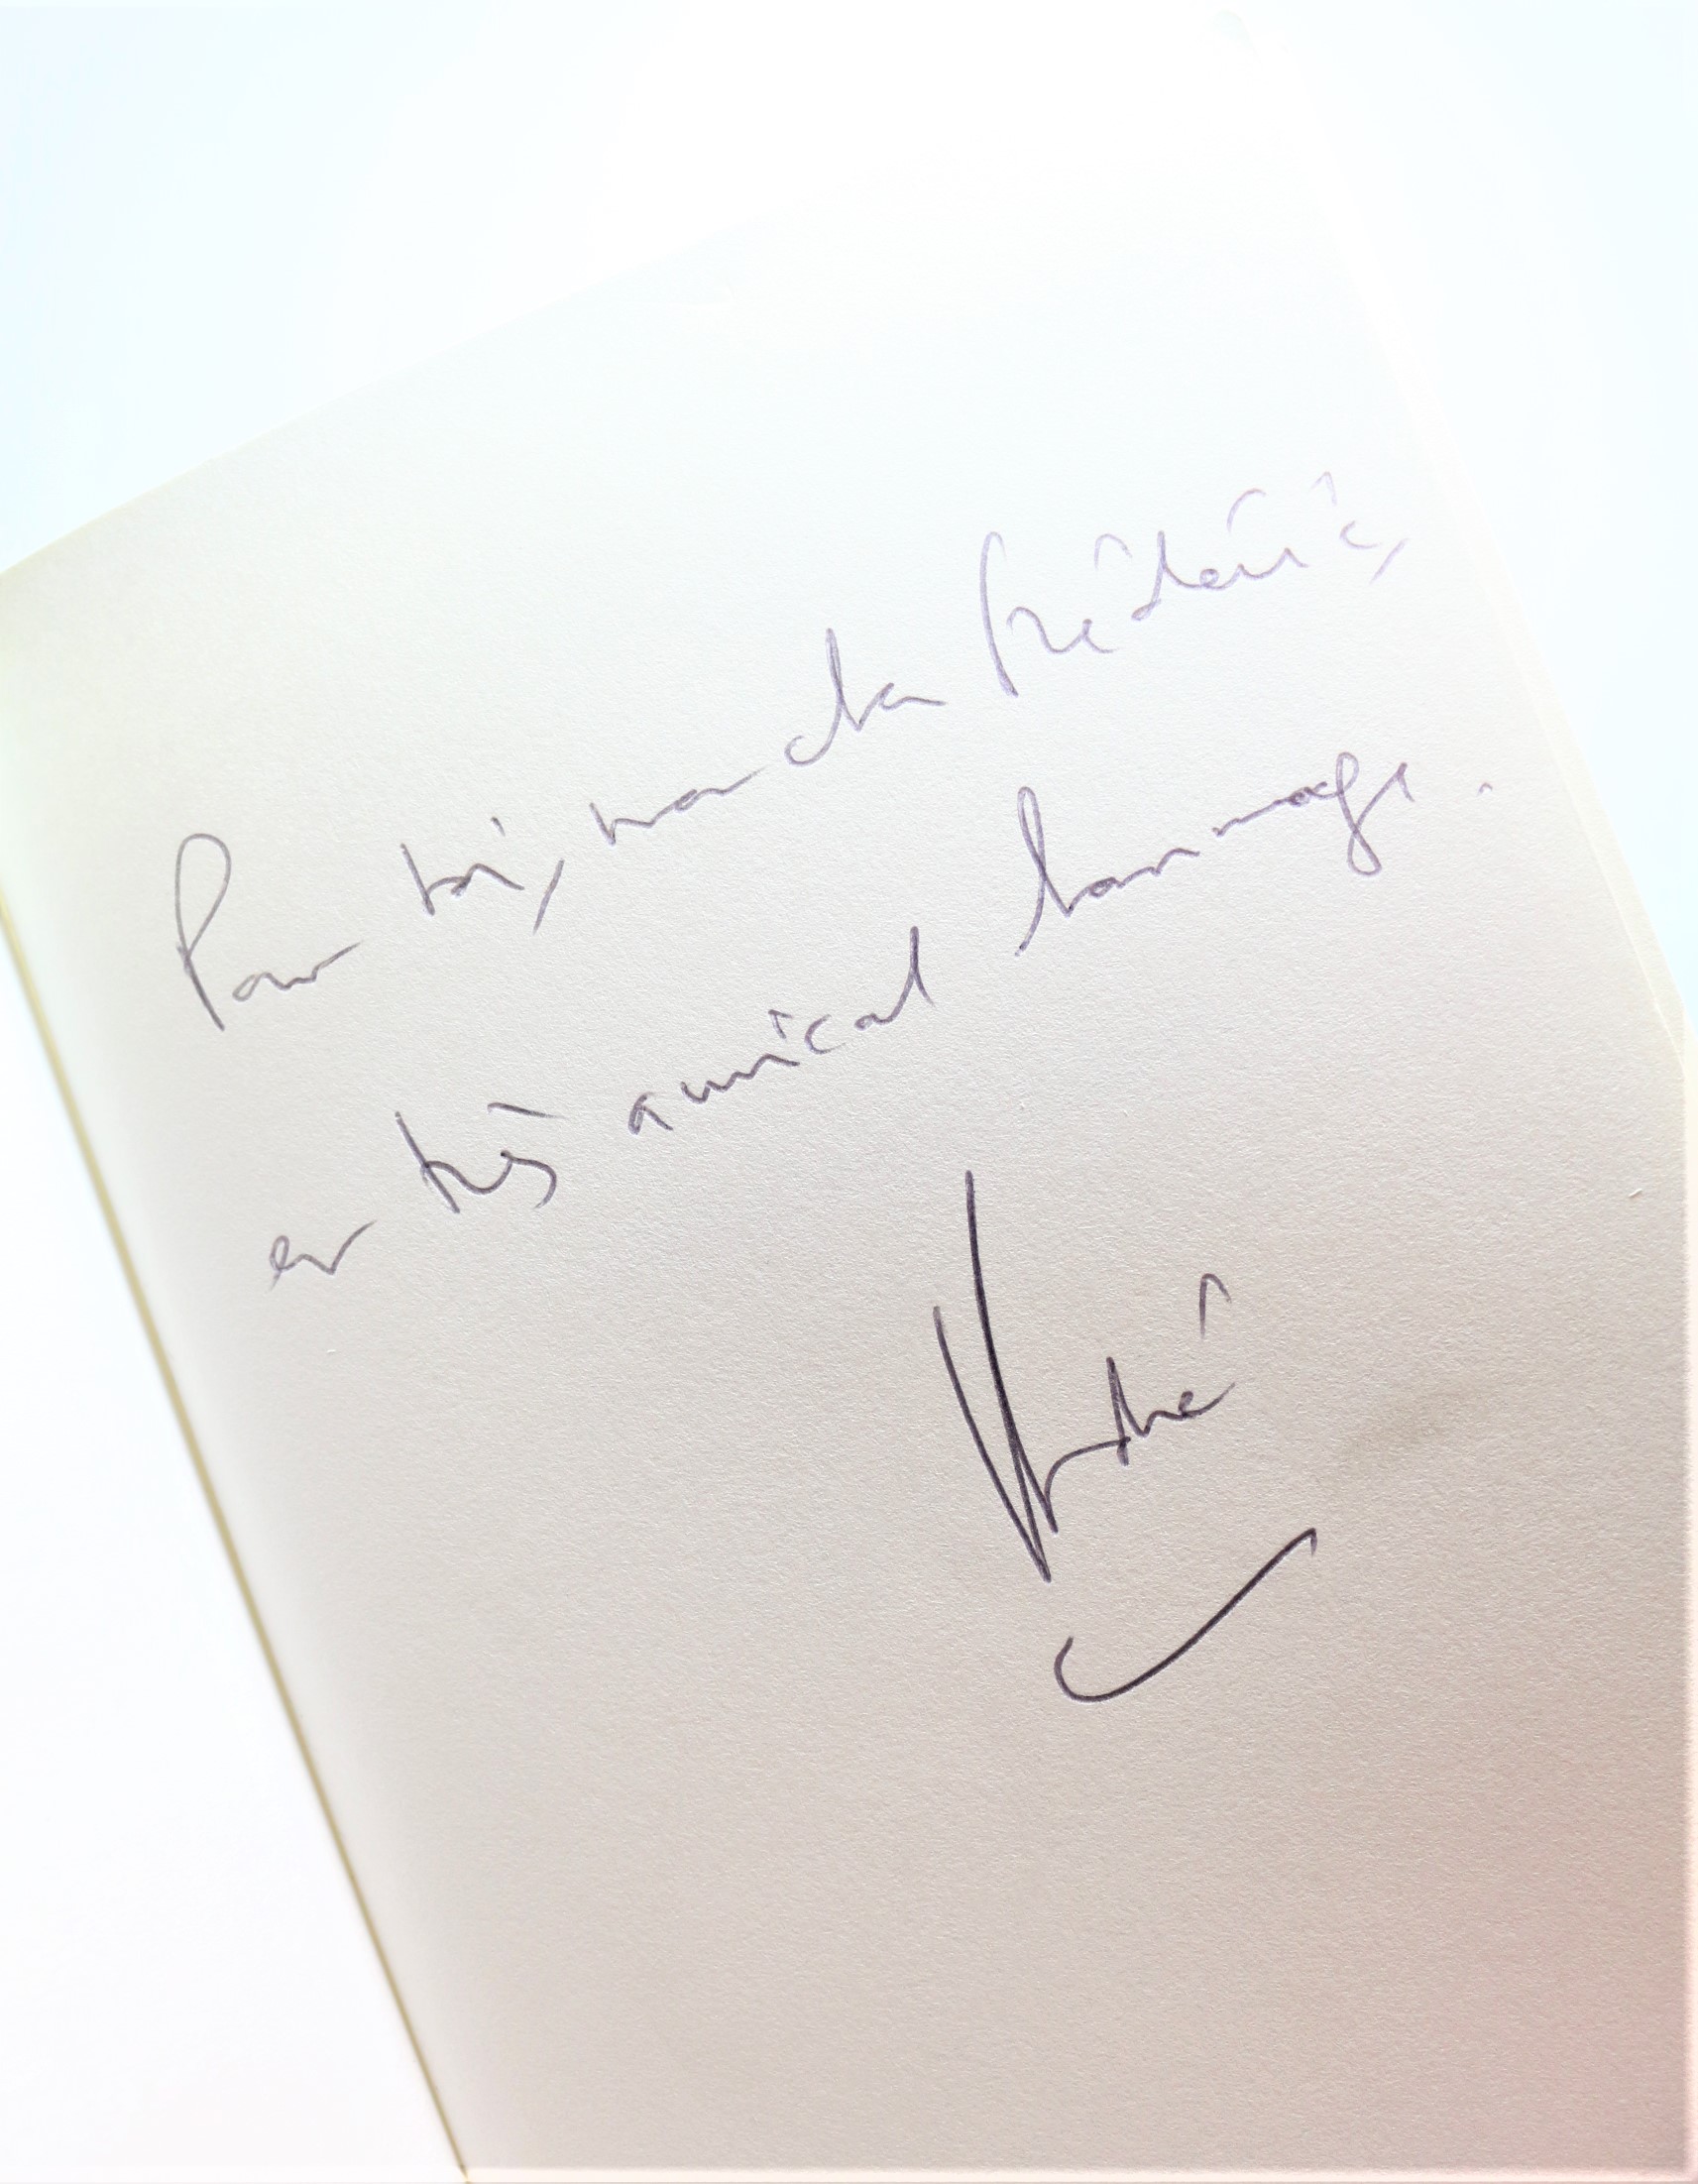 Pour toi, mon cher Frédéric,
en très amical hommage.
André